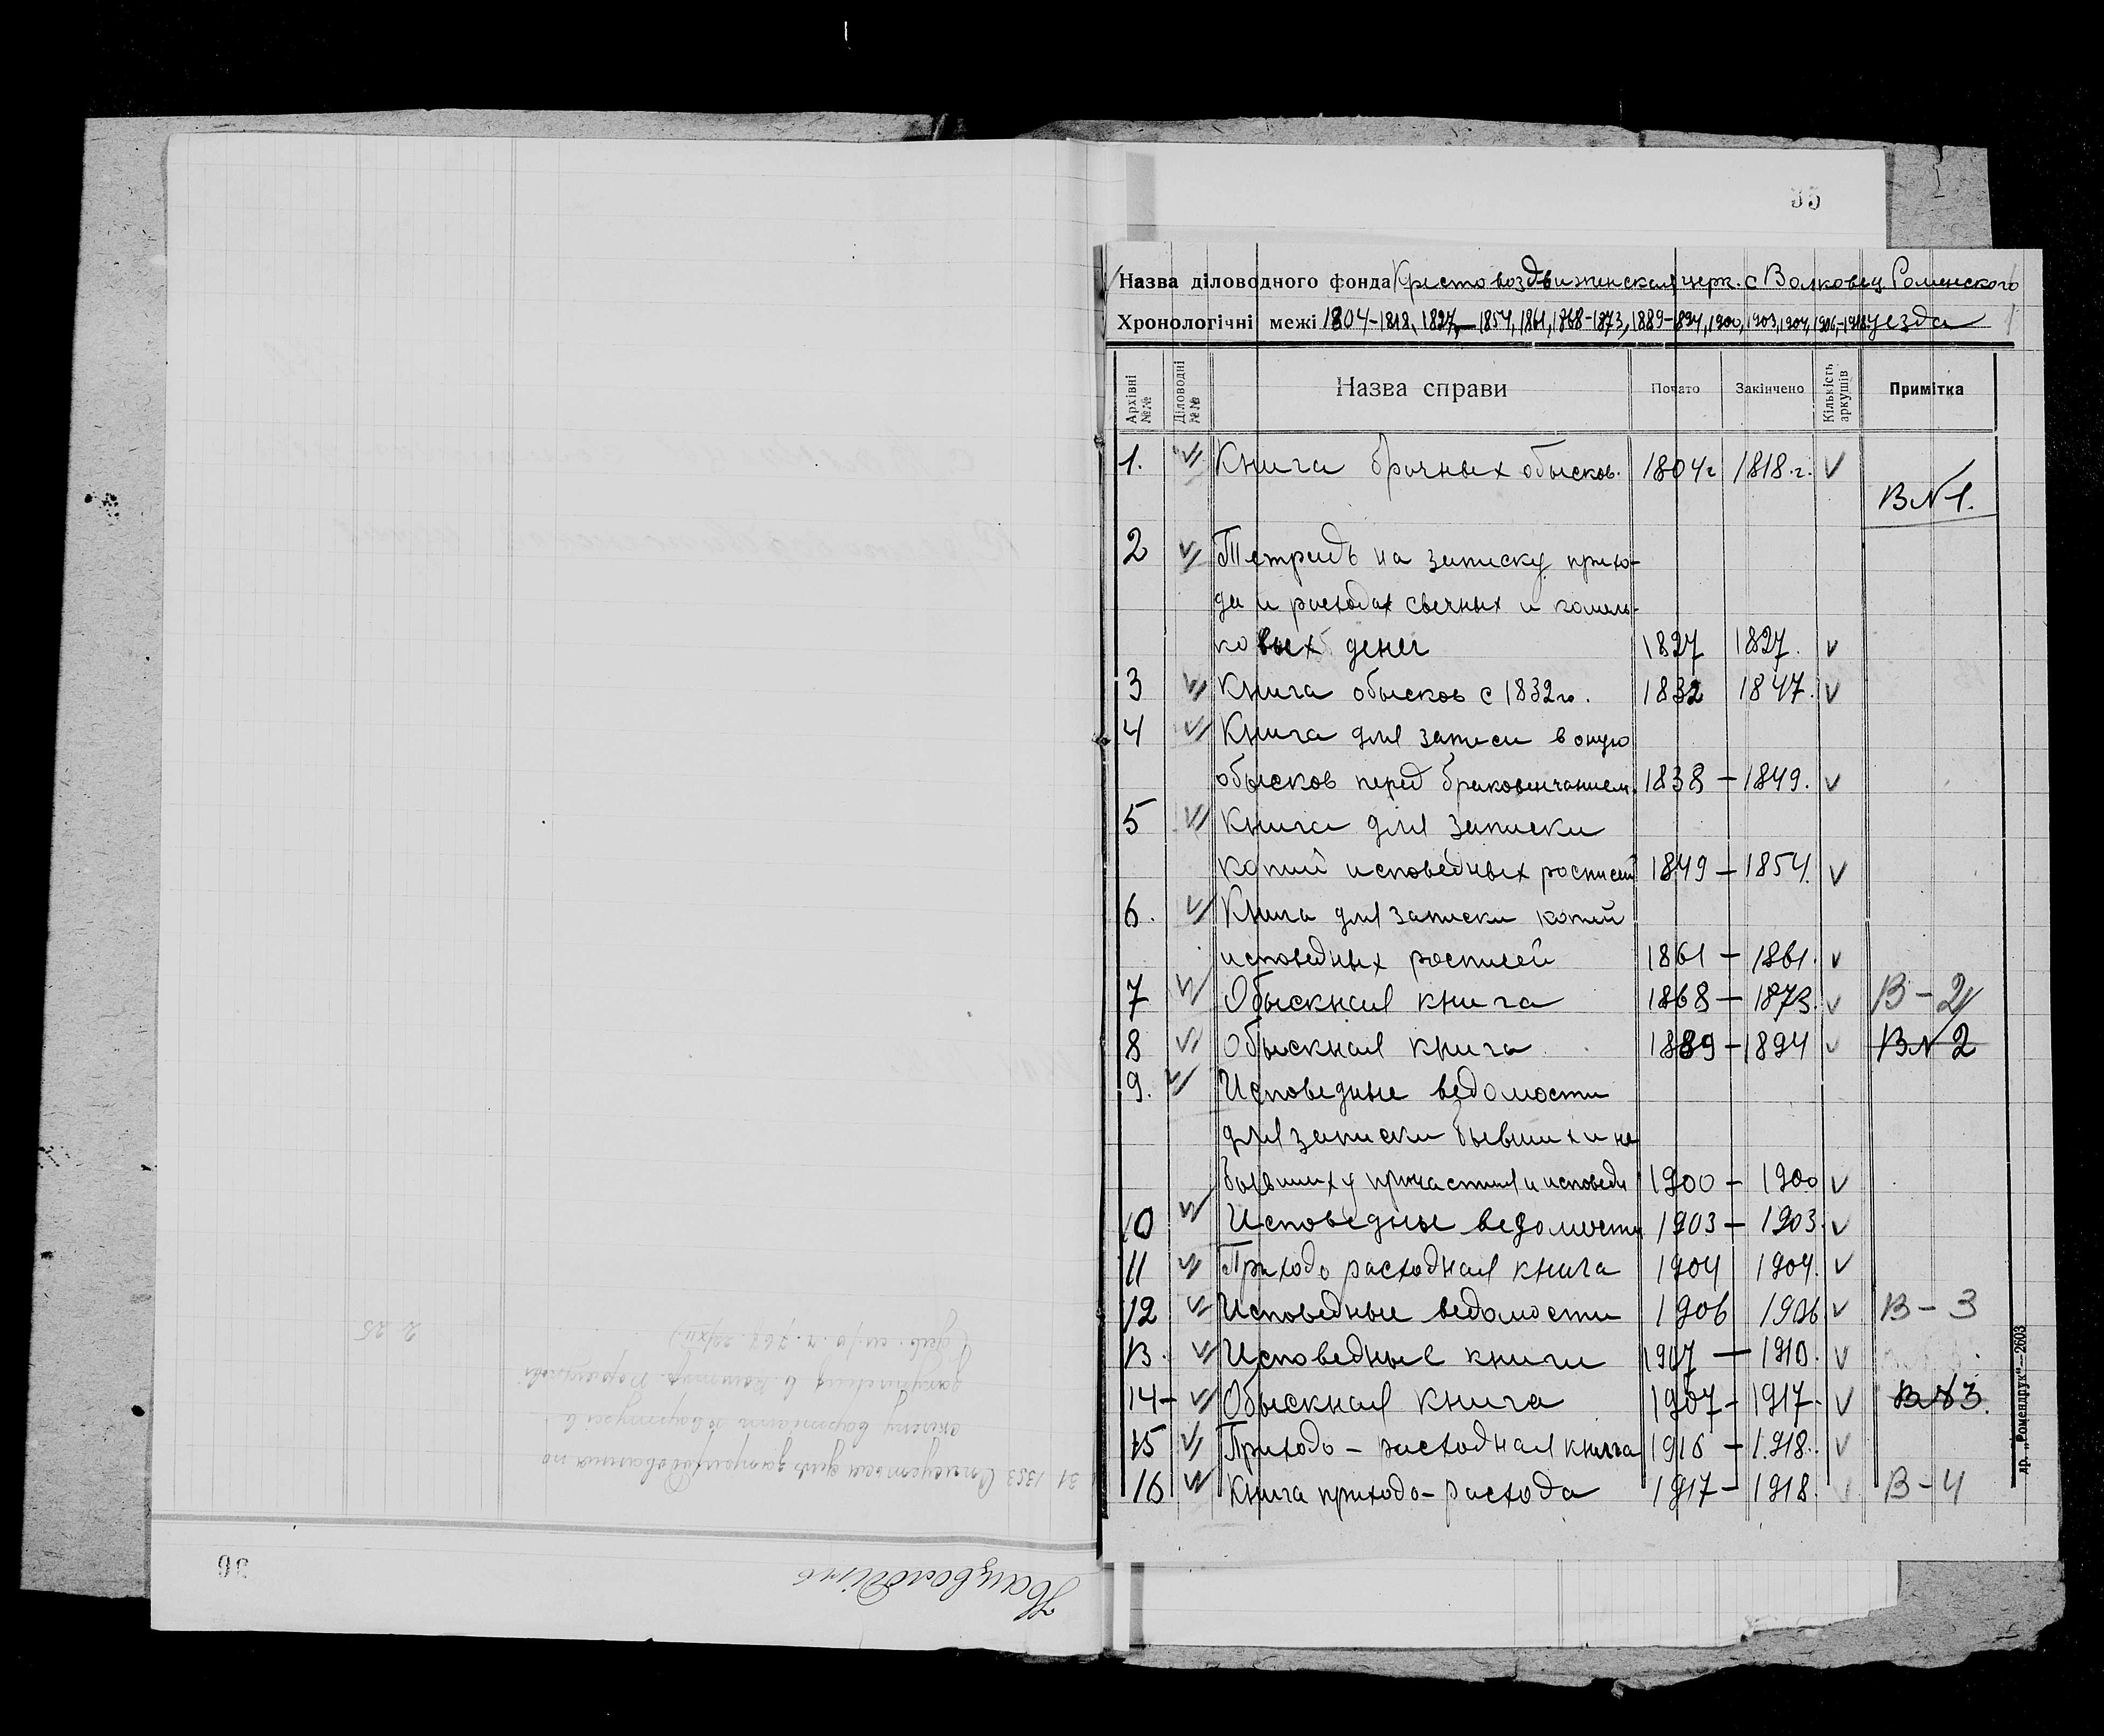 35
Назва діловодного фонда Крестовоздвиженская церк. с Волковец Роменского
Хронологічні межі 1804-1818, 1827,-1854, 1861, 1868-1873, 1889-1894, 1900, 1903, 1904, 1906,-1918 уезда
Архівні №№ Діловодні №№ Назва справи Почато Закінчено Кількість аркушів Примітка
1. Книга брачных обысков. 1804 г 1818.г. V
В №1.
2 Тетрадь на записку прихо-
да и расходах свечных и кошель-
ковых денег 1827 1827. V
3 Книга обысков с 1832го. 1832 1847. V
4 Книга для записи в оную
обысков перед браковенчанием. 1838 - 1849. V
5 Книга для записки
копий исповедных росписей 1849 - 1854. V
6. Книга для записки копий
исповедных росписей 1861 - 1861. V
7 Обыскная книга 1868 - 1873. V В - 2
8 Обыскная книга 1889 - 1894 V В № 2
9. Исповедные ведомости
для записки бывших и не
бывших у причастия и исповеди 1900 - 1900 V
10 Исповедные ведомости 1903 - 1903. V
11 Приходо расходная книга 1904 1904. V
12 Исповедные ведомости 1906 1906 V В - 3
13. Исповедные книги 1907 - 1910. V
14- Обыскная книга 1907 - 1917. V В №3.
15 Приходо - расходная книга 1916 - 1918. V
16 Книга приходо - расхода 1917 - 1918. В - 4
др. „Ромендрук“—2603
36
31 1353
2 25